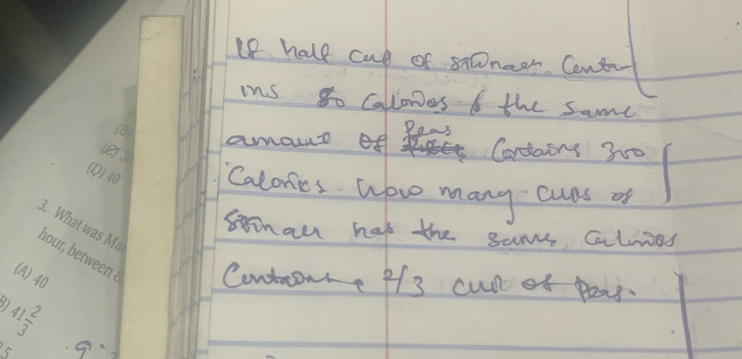 If half cup of spinach contai
ins 80 calories & the same
amount of Peas contains 300
calories. how many cups of
spinach has the same calories
2/3 cup of peas.
(B)
(D) 40
3. What was Ma
hour, between 8
(A) 40
B) 41 2/3
9.